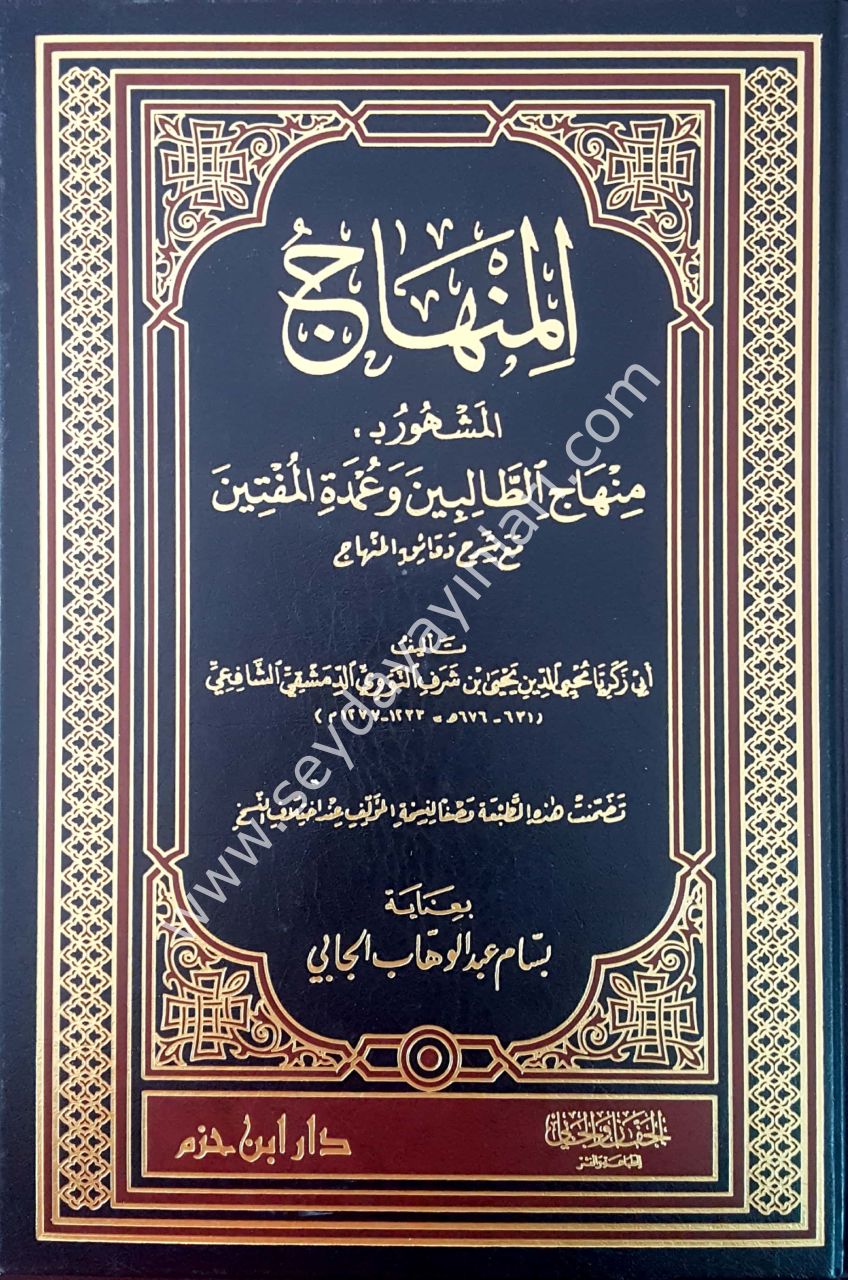 المِنْهَاجُ
المَشْهُورُ بِ:
مِنْهَاجِ ٱلطَّالِبِينَ وَعُمْدَةِ المُفْتِينَ
مَعَ شَرْحِ دَقَائِقِ المِنْهَاجِ
تَأْلِيفُ
أَبِي زَكَرِيَّا مُحْيِي الدِّينِ يَحْيَىٰ بْنِ شَرَفِ النَّوَوِيِّ الدِّمَشْقِيِّ الشَّافِعِيِّ
(٦٣١ - ٦٧٦هـ = ١٢٣٣ - ١٢٧٧م)
تَضَمَّنَتْ هٰذِهِ الطَّبْعَةُ وَصْفًا لِنُسْخَةِ المُؤَلِّفِ عِنْدَ اخْتِلَافِ النُّسَخِ
بِعِنَايَة
بسّام عبد الوهّاب الجابي
الجفان والجابي
للطباعة والنشر
دار ابن حزم
www.seydayayinlari.com